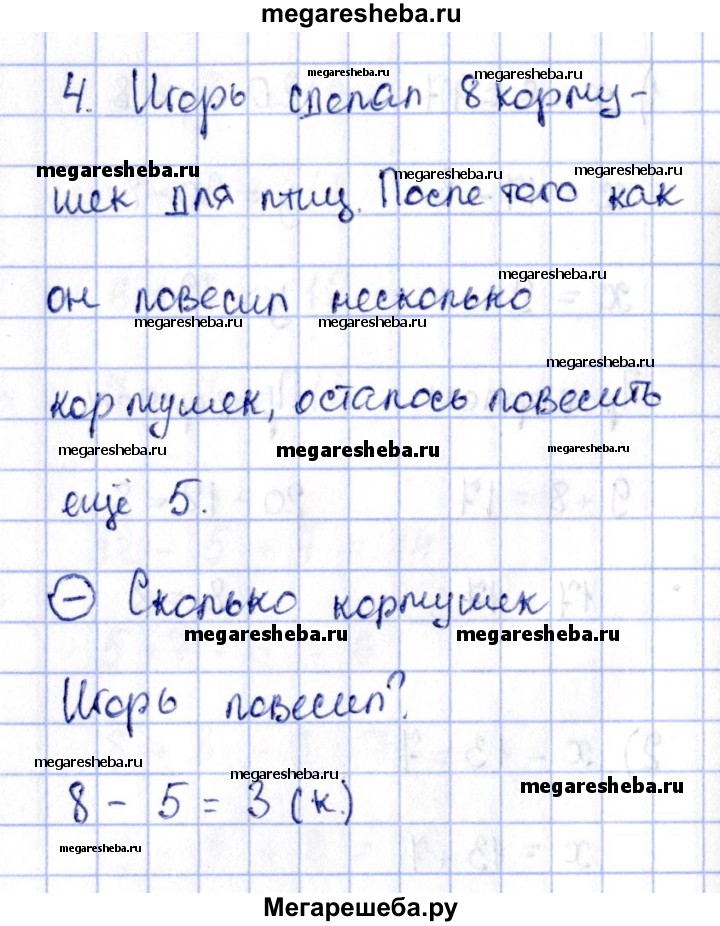 megaresheba.ru
megaresheba.ru
megaresheba.ru
4. Игорь сделал 8 корму-
megaresheba.ru
megaresheba.ru
megaresheba.ru
шек для птиц. После того как
megaresheba.ru
он повесил несколько
megaresheba.ru
megaresheba.ru
megaresheba.ru
кормушек, осталось повесить
megaresheba.ru
megaresheba.ru
megaresheba.ru
ещё 5.
− Сколько кормушек
megaresheba.ru
megaresheba.ru
Игорь повесил?
megaresheba.ru
megaresheba.ru
megaresheba.ru
8 - 5 = 3 (к.)
megaresheba.ru
Мегарешеба.ру